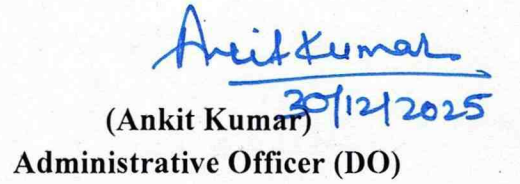 Ankit Kumar
30/12/2025
(Ankit Kumar)
Administrative Officer (DO)